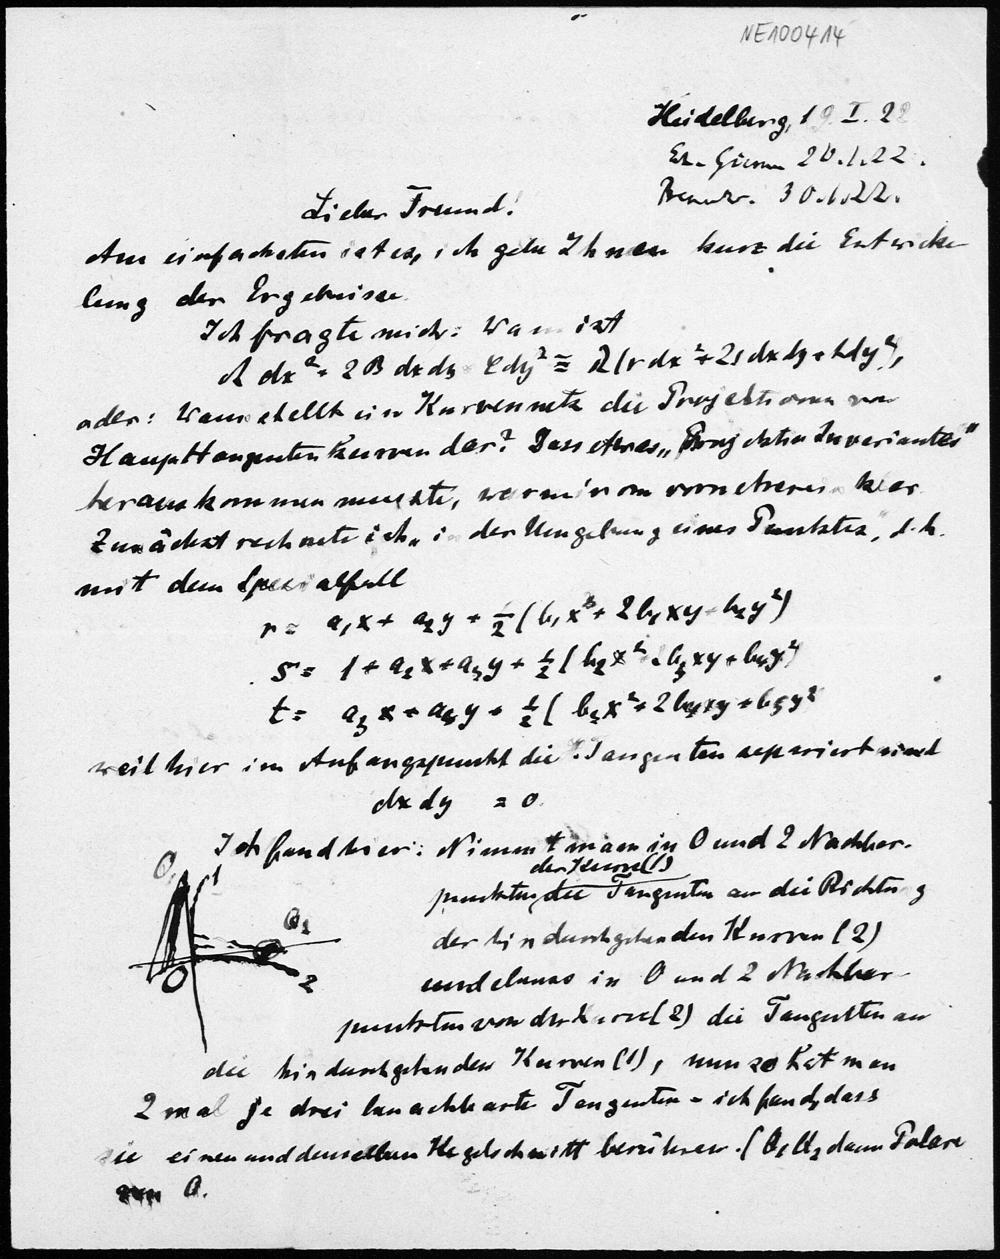 NE100414
Heidelberg, 19.I.22
20.I.22.
30.I.22.
Lieber Freund!
Am einfachsten ist es, ich gebe Ihnen kurz die Entwicke
lung der Ergebnisse.
Ich fragte mich: Wann ist
A dx² + 2B dxdy + C dy² ≡ λ(r dx² + 2s dxdy + t dy²),
oder: Wann stellt ein Kurvennetz die Projektionen von
Haupttangentenkurven dar? Dass etwas „Projektiv Invariantes"
herauskommen musste, war mir von vornherein klar.
Zunächst rechnete ich „in der Umgebung eines Punktes", d.h.
mit dem Spezialfall
r = a₁x + a₂y + ½(b₁x² + 2b₂xy + b₃y²)
s = 1 + a₂x + a₃y + ½(b₂x² + 2b₃xy + b₄y²)
t = a₃x + a₄y + ½(b₃x² + 2b₄xy + b₅y²
weil hier im Anfangspunkt die Tangenten separiert sind
dxdy = 0.
Ich fand hier: Nimmt man in O und 2 Nachbar-
der Kurve (1)
punkten die Tangenten an die Richtung
der hindurchgehenden Kurven (2)
und ebenso in O und 2 Nachbar-
punkten von der Kurve (2) die Tangenten an
die hindurchgehenden Kurven (1), nun so hat man
2 mal je drei benachbarte Tangenten - ich fand, dass
sie einen und denselben Kegelschnitt berühren. (O₁O₂ dann Polare
zu O.
O₁
1
O₂
O
2